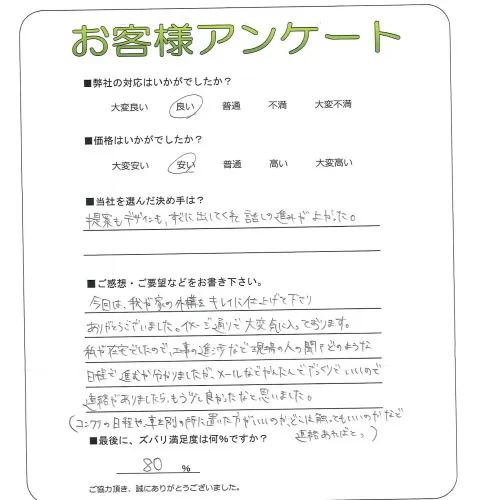 お客様アンケート
■弊社の対応はいかがでしたか？
大変良い 良い 普通 不満 大変不満
■価格はいかがでしたか？
大変安い 安い 普通 高い 大変高い
■当社を選んだ決め手は？
提案もデザインも、すぐに出してくれて 話しの進みがよかった。
■ご感想・ご要望などをお書き下さい。
今回は、我が家の外構をキレイに仕上げて下り
ありがとうございました。イメージ通りで大変気に入っております。
私が在宅でしたので、工事の進渉など現場の人の聞けどのような
日程で進むか分かりましたが、メールなどかんたんでざっくりでいいので
連絡がありましたら、もう少し良かったなと思いました。
(コンクリの日程や、車を別の所に置いた方がいいのか、どこは触ってもいいのかなど
連絡あればと。)
■最後に、ズバリ満足度は何％ですか？
80 %
ご協力頂き、誠にありがとうございました。